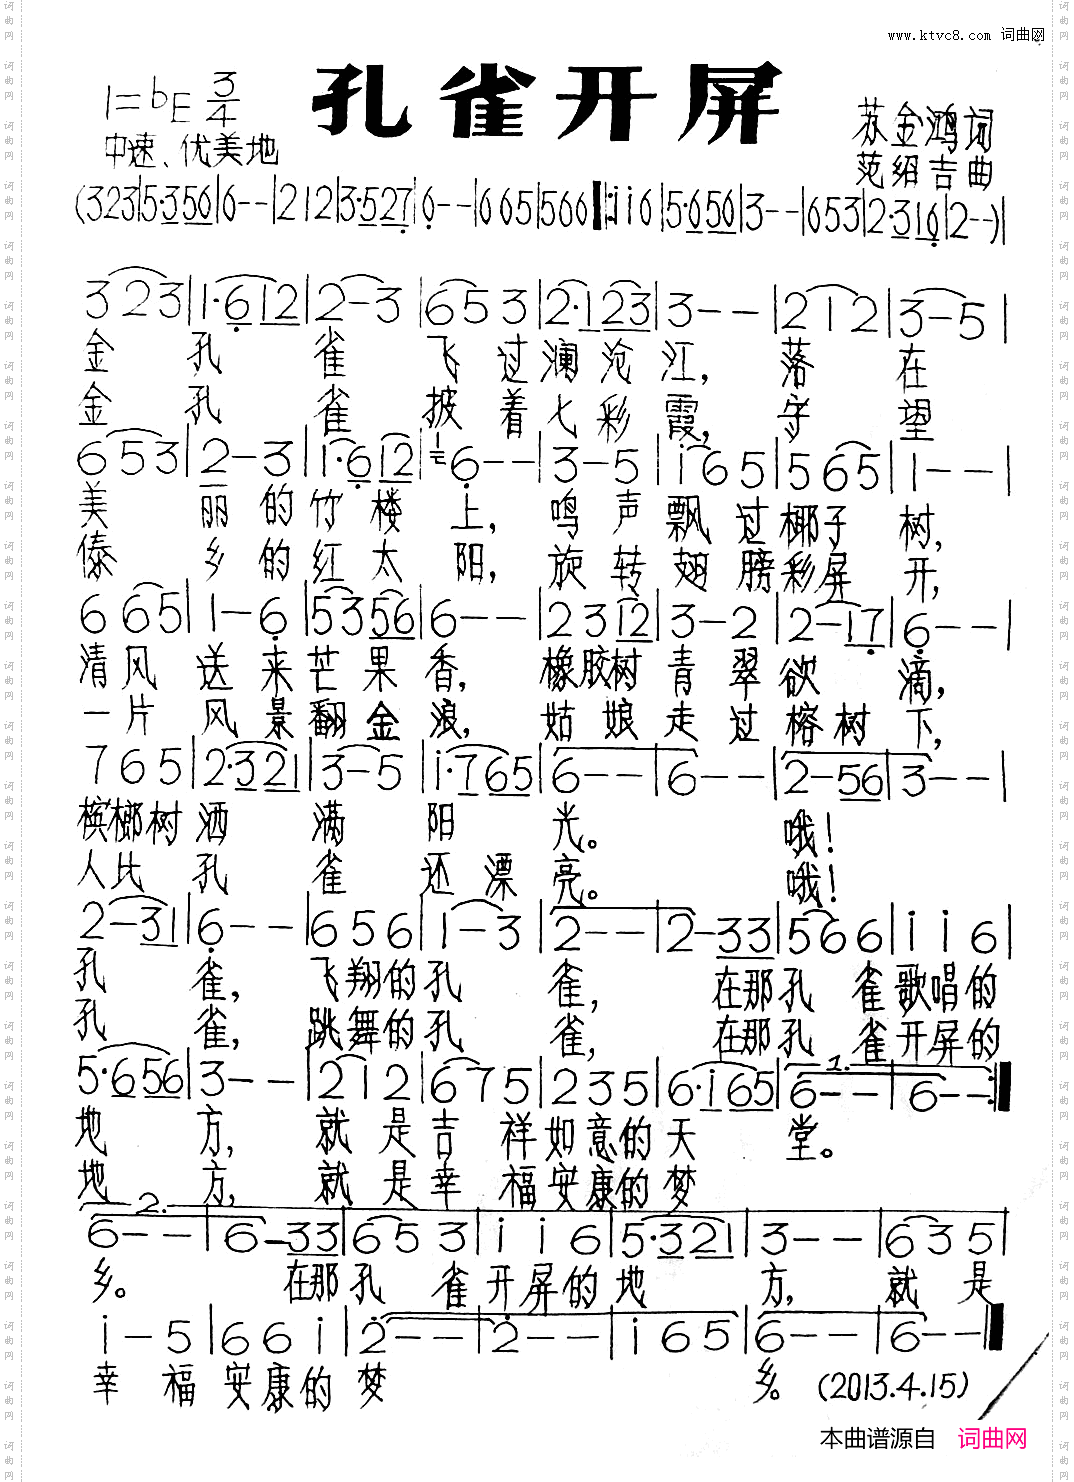 www.ktvc8.com 词曲网
孔雀开屏
1=bE 3/4
中速、优美地
苏金鸿词
范绍吉曲
(323|5·356|6--|212|3·527|6--|665|566‖:i i6|5·656|3--|653|2·316|2--)|
323|1·612|2-3|653|2·123|3--|212|3-5|
金 孔 雀 飞 过 澜 沧 江, 落 在
金 孔 雀 披 着 七 彩 霞, 守 望
653|2-3|1·612|6--|3-5|i65|565|1--|
美 丽 的 竹 楼 上, 鸣 声 飘 过 椰子 树,
傣 乡 的 红 太 阳, 旋 转 翅 膀 彩屏 开,
665|1-6|5356|6--|2312|3-2|2-17|6--|
清风 送 来 芒 果 香, 橡胶树 青 翠 欲 滴,
一片 风 景 翻 金 浪, 姑 娘 走 过 榕 树 下,
765|2·321|3-5|i·765|6--|6--|2-56|3--|
槟榔树 洒 满 阳 光。 哦!
人比 孔 雀 还 漂 亮。 哦!
2-31|6--|656|1-3|2--|2-33|566|i i6|
孔 雀, 飞翔的孔 雀, 在那孔 雀歌唱的
孔 雀, 跳舞的孔 雀, 在那孔 雀开屏的
5·656|3--|212|675|235|6·i65|1.6--|6--:‖
地 方, 就 是 吉 祥 如意的 天 堂。
地 方, 就 是 幸 福 安康的 梦
2.
6--|6-33|653|i i6|5·321|3--|635|
乡。 在那孔 雀开屏的 地 方, 就 是
i-5|66i|2--|2--|i65|6--|6--‖
幸 福 安康的 梦 乡。 (2013.4.15)
本曲谱源自 词曲网
词曲网